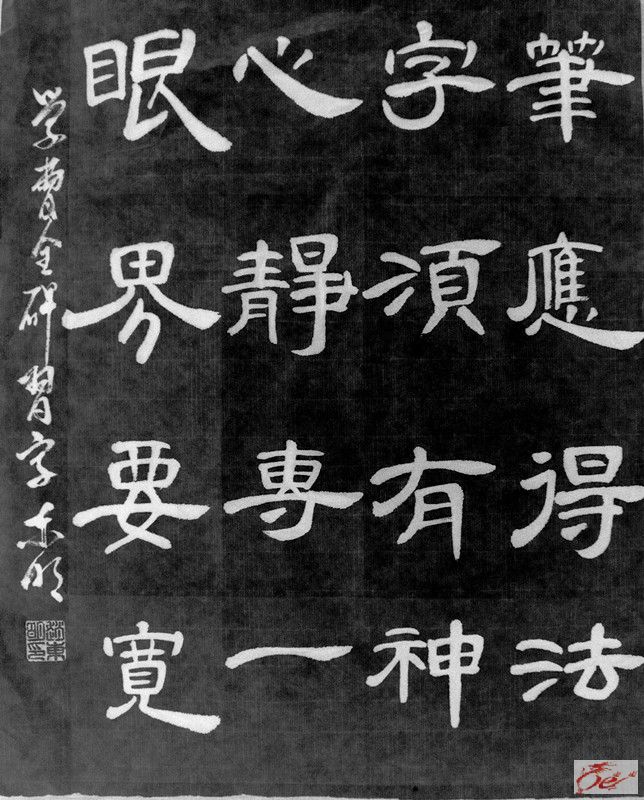 筆應得法
字湏有神
心靜專一
眼界要寬
学曹全碑習字东明